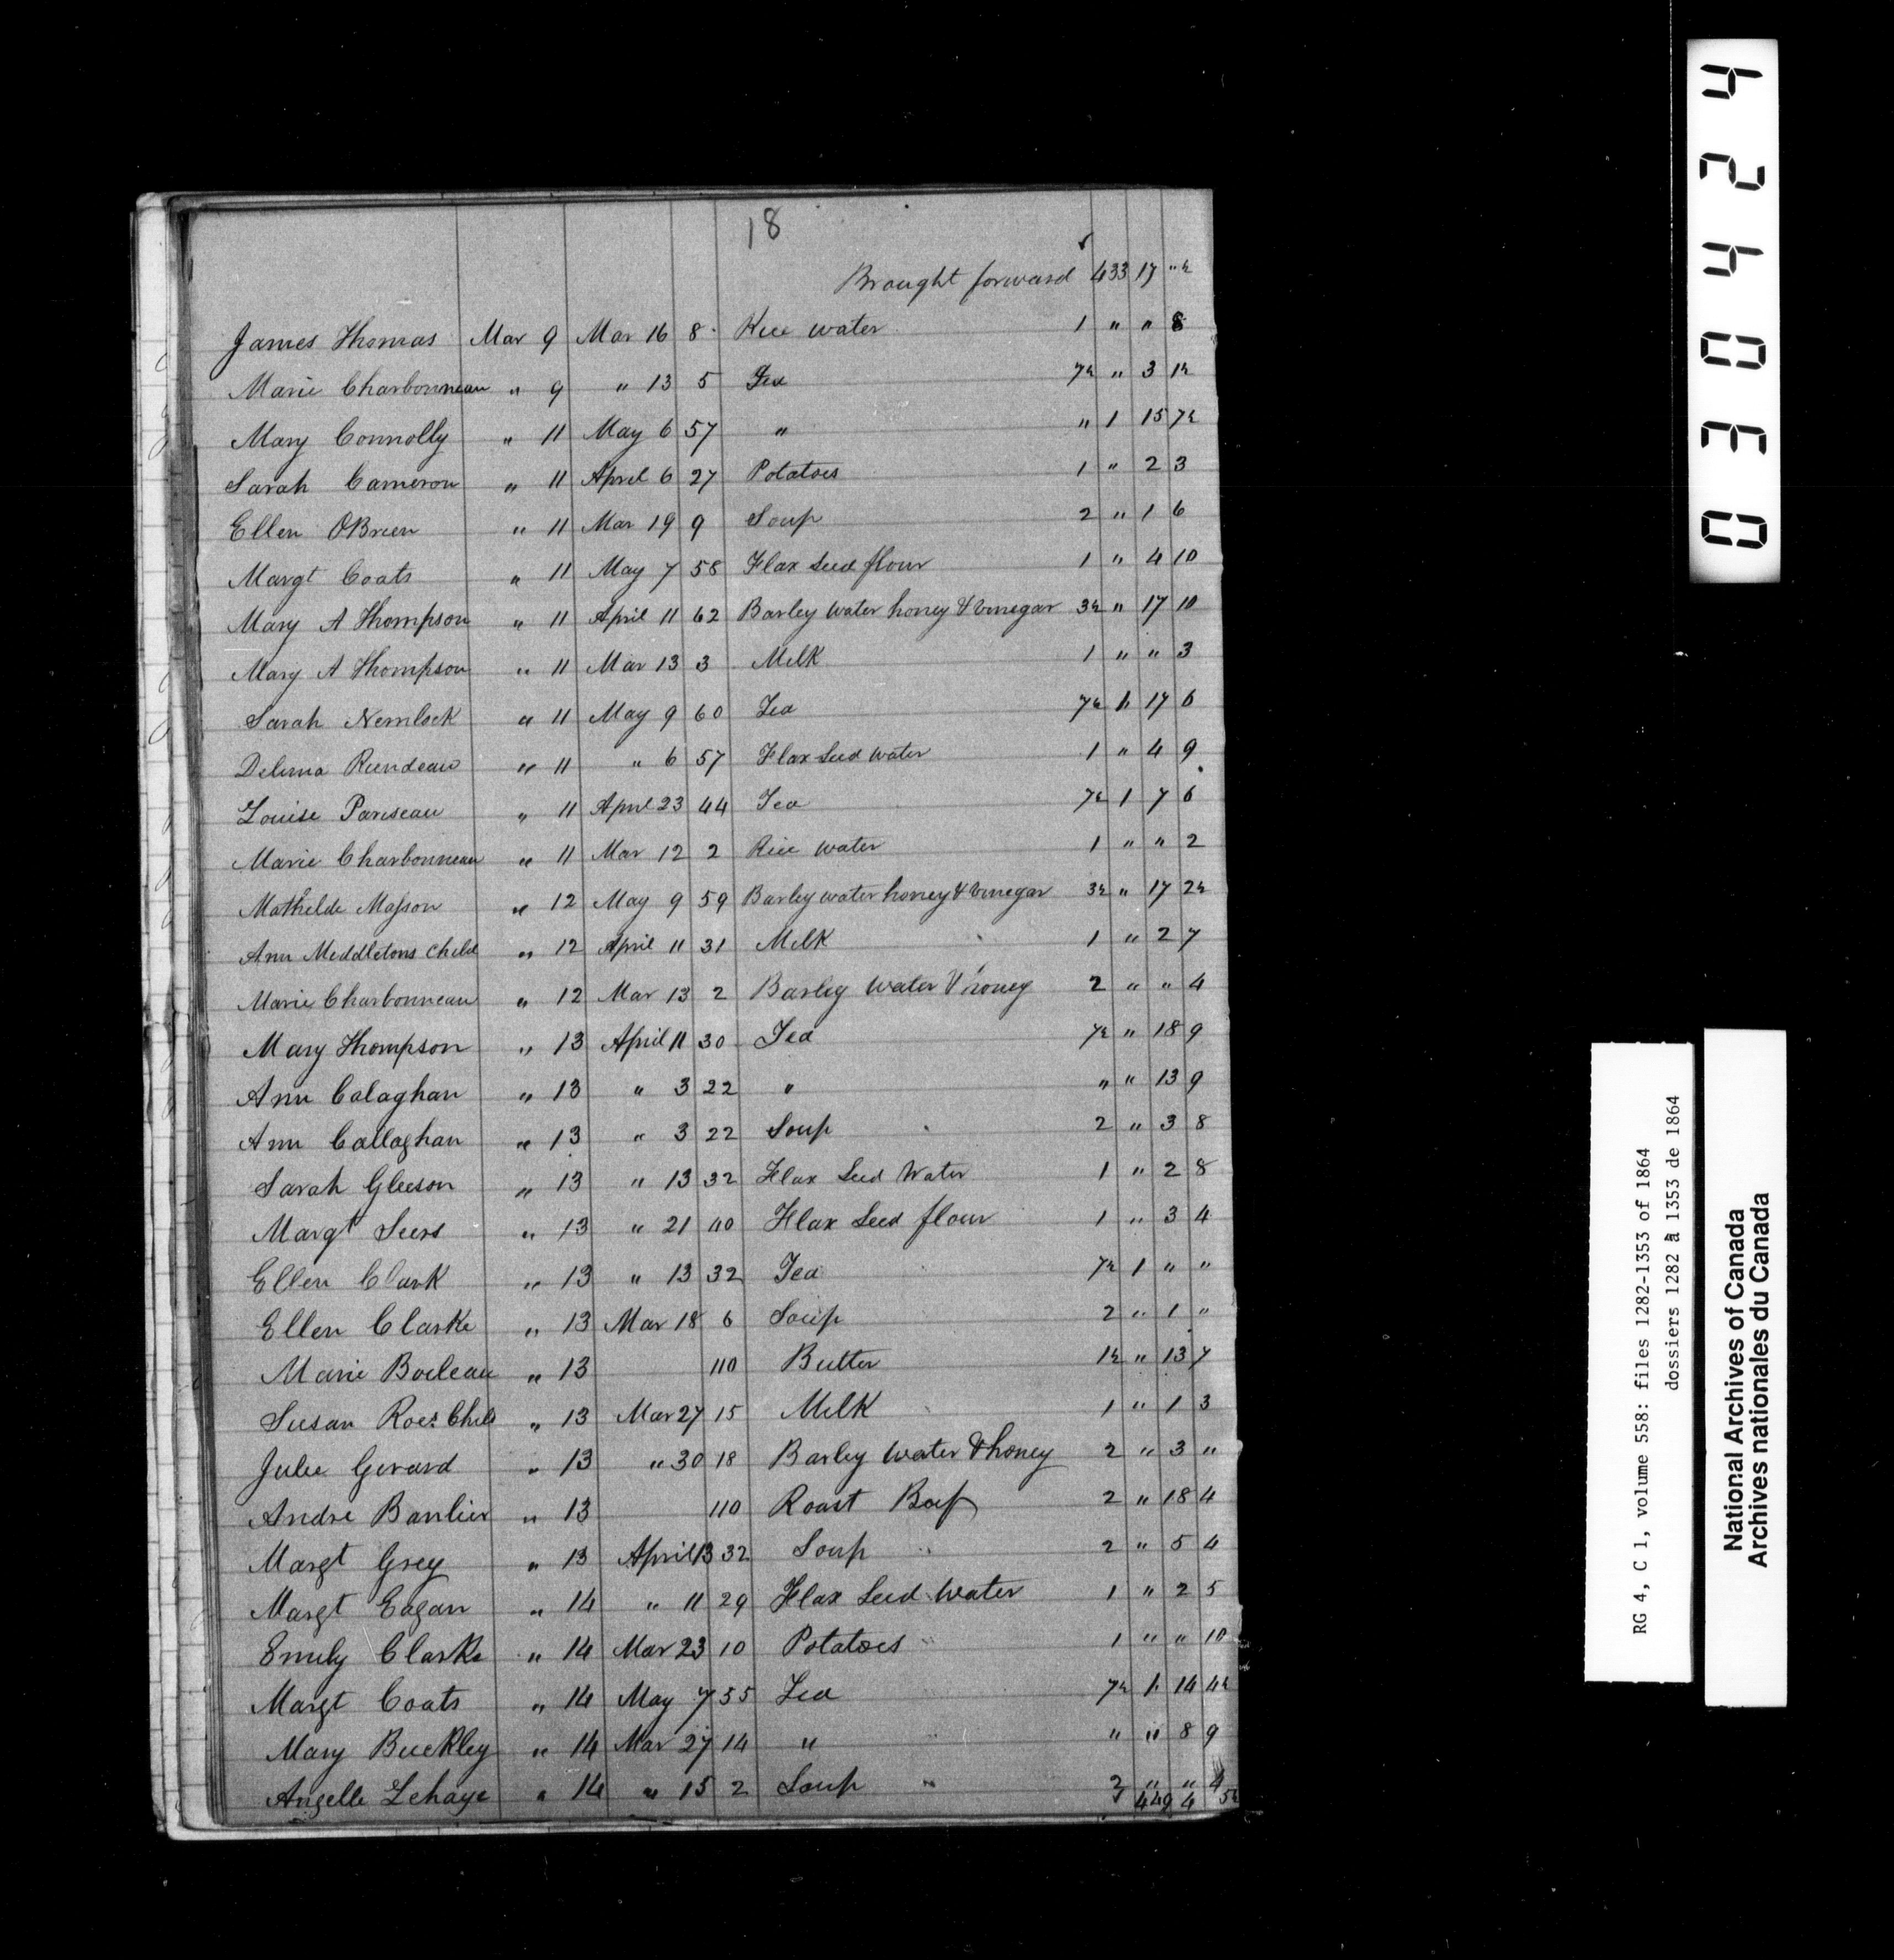 18
Brought forward 433 17 "½
James Thomas Mar 9 Mar 16 8 Rice water 1 " " 8
Marie Charbonneau " 9 " 13 5 Tea 7½ " 3 1½
Mary Connolly " 11 May 6 57 " " 1 15 7½
Sarah Cameron " 11 April 6 27 Potatoes 1 " 2 3
Ellen OBrien " 11 Mar 19 9 Soup 2 " 1 6
Margt Coats " 11 May 7 58 Flax Seed flour 1 " 4 10
Mary A Thompson " 11 April 11 62 Barley water honey & vinegar 3½ " 17 10
Mary A Thompson " 11 Mar 13 3 Milk 1 " " 3
Sarah Nemlock " 11 May 9 60 Tea 7½ 1 17 6
Delima Rundeau " 11 " 6 57 Flax Seed water 1 " 4 9
Louise Pariseau " 11 April 23 44 Tea 7½ 1 7 6
Marie Charbonneau " 11 Mar 12 2 Rice water 1 " " 2
Mathelde Masson " 12 May 9 59 Barley water honey & vinegar 3½ " 17 2½
Ann Meddletons Child " 12 April 11 31 Milk 1 " 2 7
Marie Charbonneau " 12 Mar 13 2 Barley water & honey 2 " " 4
Mary Thompson " 13 April 11 30 Tea 7½ " 18 9
Ann Calaghan " 13 " 3 22 " " " 13 9
Ann Callaghan " 13 " 3 22 Soup 2 " 3 8
Sarah Gleeson " 13 " 13 32 Flax Seed Water 1 " 2 8
Margt Seers " 13 " 21 40 Flax Seed flour 1 " 3 4
Ellen Clark " 13 " 13 32 Tea 7½ 1 " "
Ellen Clarke " 13 Mar 18 6 Soup 2 " 1 "
Marie Boileau " 13 110 Butter 1½ " 13 7
Susan Roes Child " 13 Mar 27 15 Milk 1 " 1 3
Julie Gerard " 13 " 30 18 Barley water & honey 2 " 3 "
Andre Banlier " 13 110 Roast Beef 2 " 18 4
Margt Grey " 13 April 13 32 Soup 2 " 5 4
Margt Eagan " 14 " 11 29 Flax Seed Water 1 " 2 5
Emily Clarke " 14 Mar 23 10 Potatoes 1 " " 10
Margt Coats " 14 May 7 55 Tea 7½ 1 14 4½
Mary Buckley " 14 Mar 27 14 " " " 8 9
Angelle Lehaye " 14 " 15 2 Soup 2 " " 4
449 4 5½
030424
RG 4, C 1, volume 558: files 1282-1353 of 1864
dossiers 1282 à 1353 de 1864
National Archives of Canada
Archives nationales du Canada